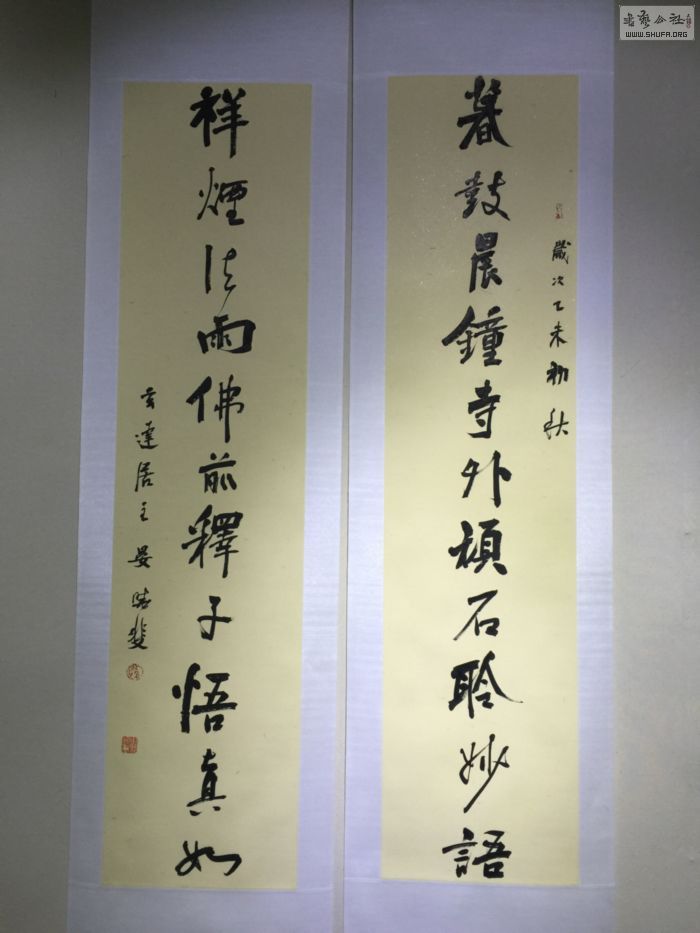 暮鼓晨鐘寺外頑石聆妙語
歲次乙未初秋
祥煙法雨佛前釋子悟真如
達居主晏
書藝公社
WWW.SHUFA.ORG